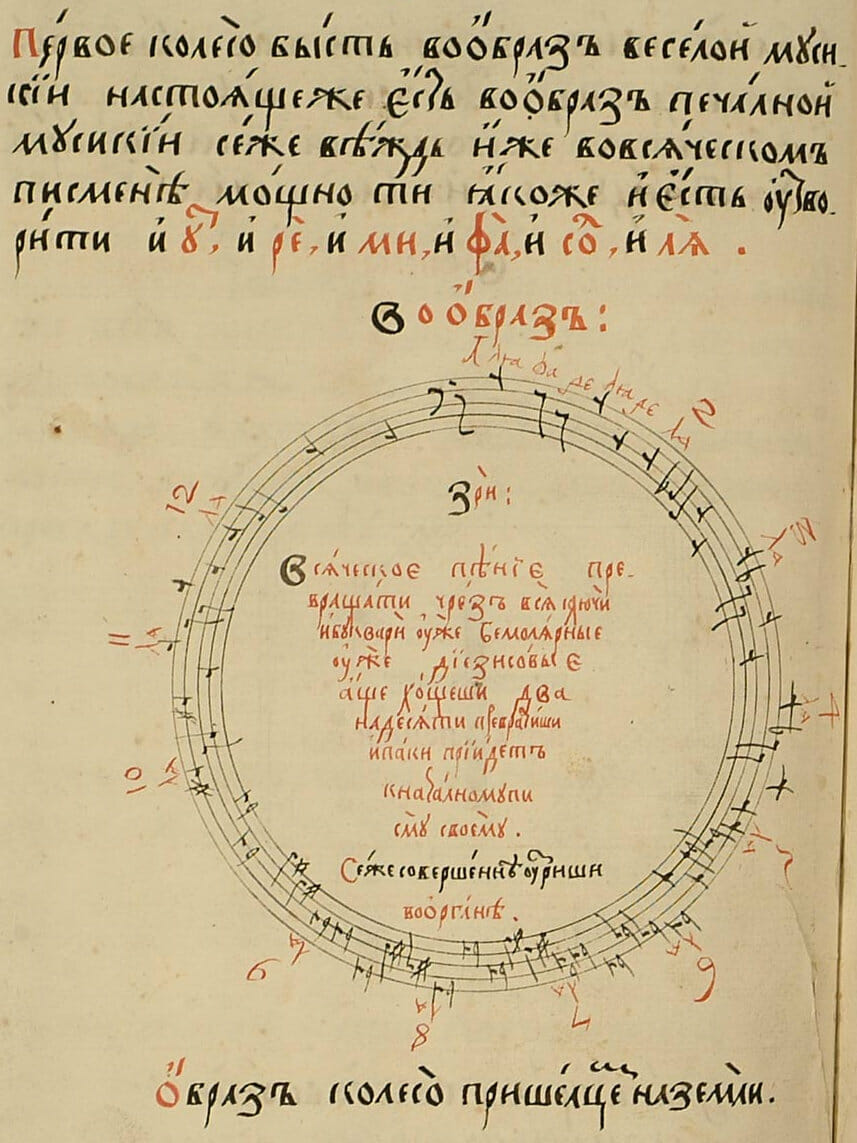 Пе́рвое колесо̀ бы́сть воо́бразъ весе́лой муси-
кі́и настоѧ́щееже є҆́сть воо́бразъ печа́лной
мусикі́и се́же вѣ́ждь и҆́же вовсѧ́ческомъ
писменѣ̀ мо́щно ти ꙗ҆́коже и҆є҆́сть ᲂу҆тво-
ри́ти и҆ у҆́т, и҆ ре̑, и҆ ми, и҆ фа̀, и҆ со̀л, и҆ лѧ̀.
Воо́бразъ:
Зрѝ:
Всѧ́ческое пѣ́нїе пре-
враща́ти чрез̾ всѧ̑ ключи̑
и҆букварѝ ᲂу҆́же бемолѧ́рные
ᲂу҆́же дїе́зисовыѣ
а҆́ще хо́щеши два
на́десѧти преврати́ши
и҆па́ки прїи́детъ
кнача́лномупи
смꙋ̀ своемꙋ̀.
Се́же соверше́ннѣ ᲂу҆́зриши
воо҆рга́нѣ.
2
3
4
5
6
7
8
9
10
11
12
О҆́бразъ колесо̀ прише́лще на земли̑.